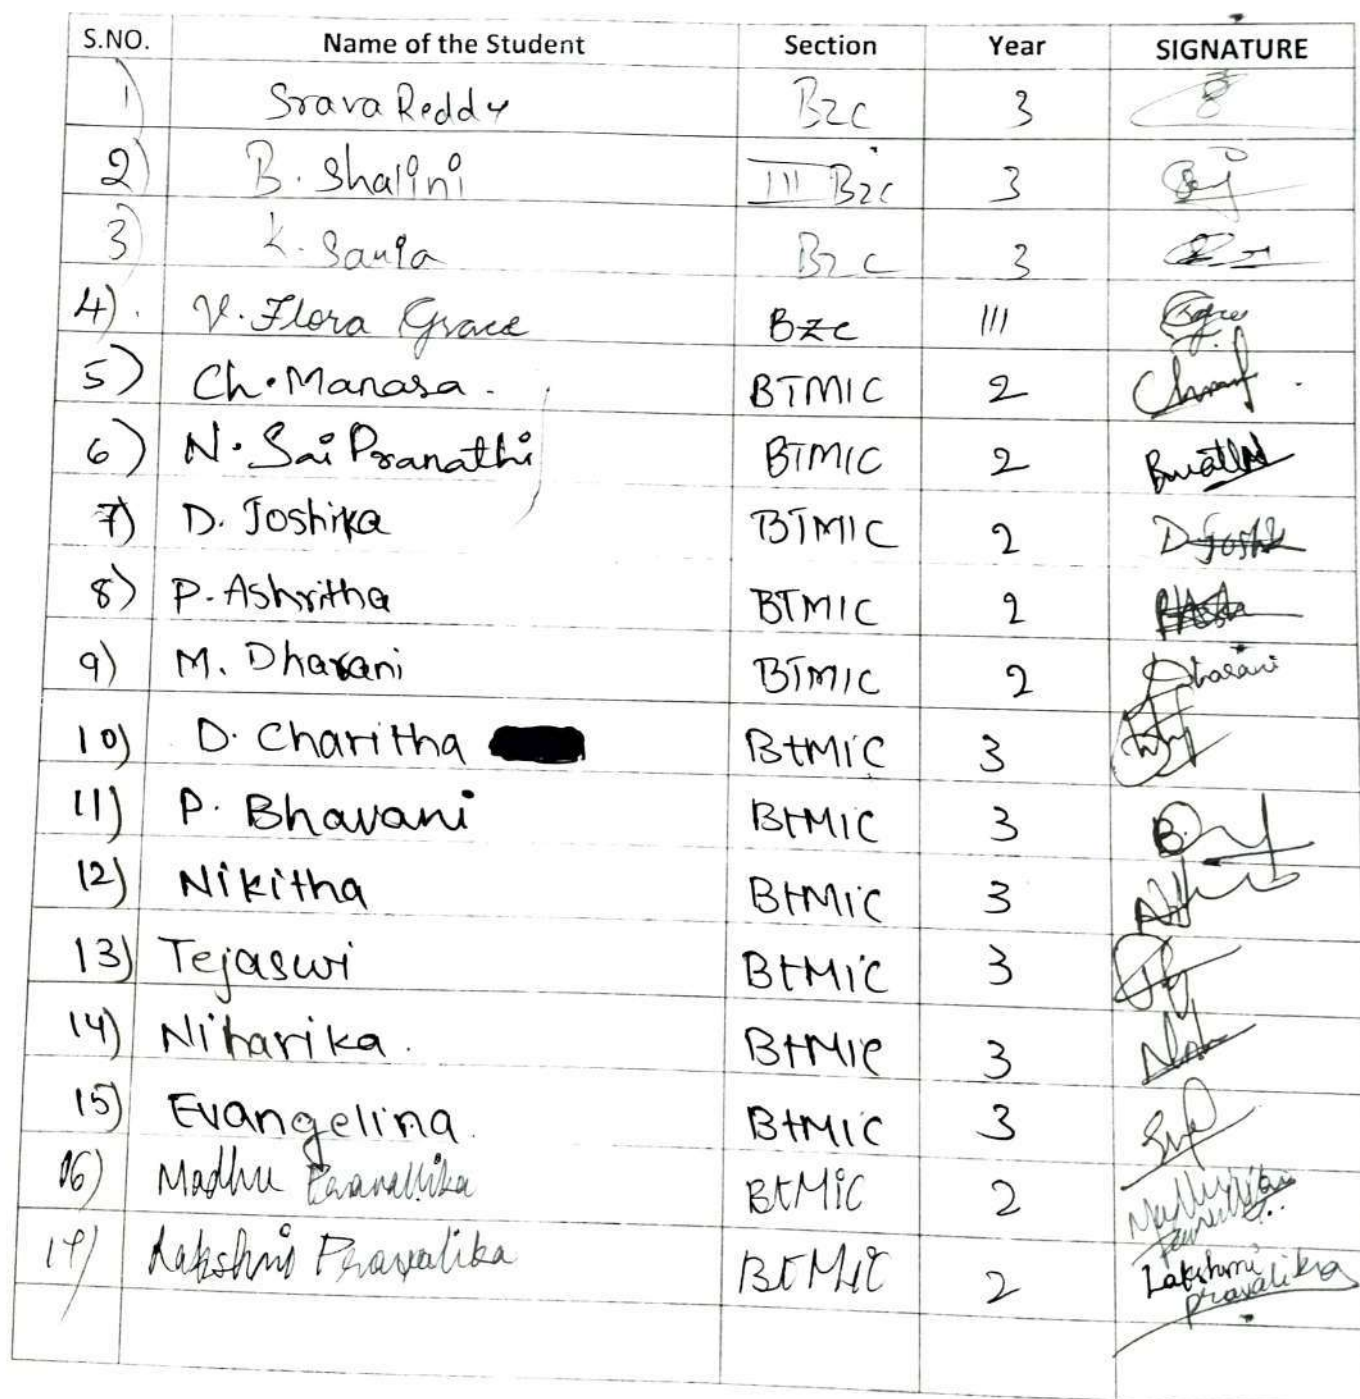 S.NO. Name of the Student Section Year SIGNATURE
1) Srava Reddy Bzc 3
2) B. Shalini III Bzc 3
3) K. Bzc 3
4). V. Flora Grace Bzc III
5) Ch. Manasa. BTMIC 2
6) N. Sai Pranathi BTMIC 2
7) D. Joshika BTMIC 2 D. Joshi
8) P. Ashritha BTMIC 2
9) M. Dharani BTMIC 2 Dharani
10) D. Charitha BtMiC 3
11) P. Bhavani BtMiC 3
12) Nikitha BtMiC 3
13) Tejaswi BtMiC 3
14) Niharika. BtMiC 3
15) Evangelina. BtMiC 3
16) Madhu BtMiC 2
17) Lakshmi Pravalika BtMiC 2 Lakshmi pravalika